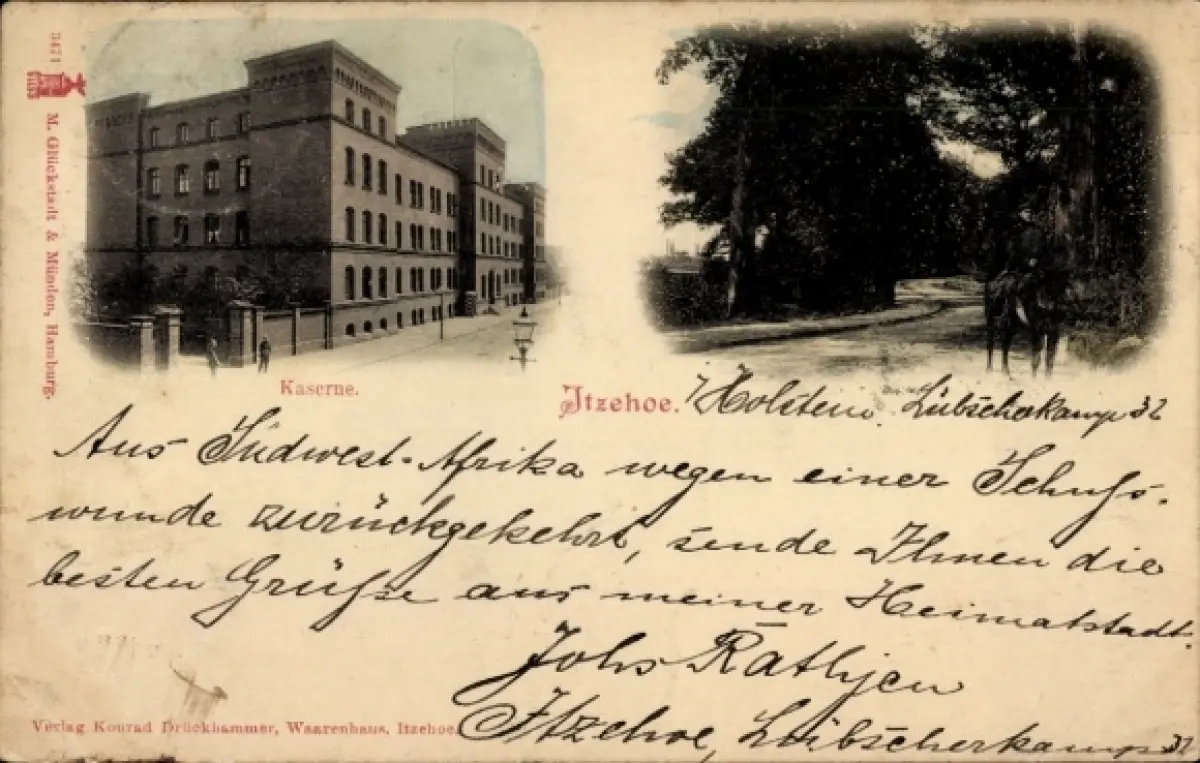 3471
M. Glückstadt & Münden, Hamburg.
Kaserne.
Itzehoe. i/Holstein. Lübscherkamp 32
Aus Südwest-Afrika wegen einer Schuss-
wunde zurückgekehrt, sende Ihnen die
besten Grüsse aus meiner Heimatstadt.
Johs Räthjen
Itzehoe, Lübscherkamp 32
Verlag Konrad Drückhammer, Waarenhaus, Itzehoe.